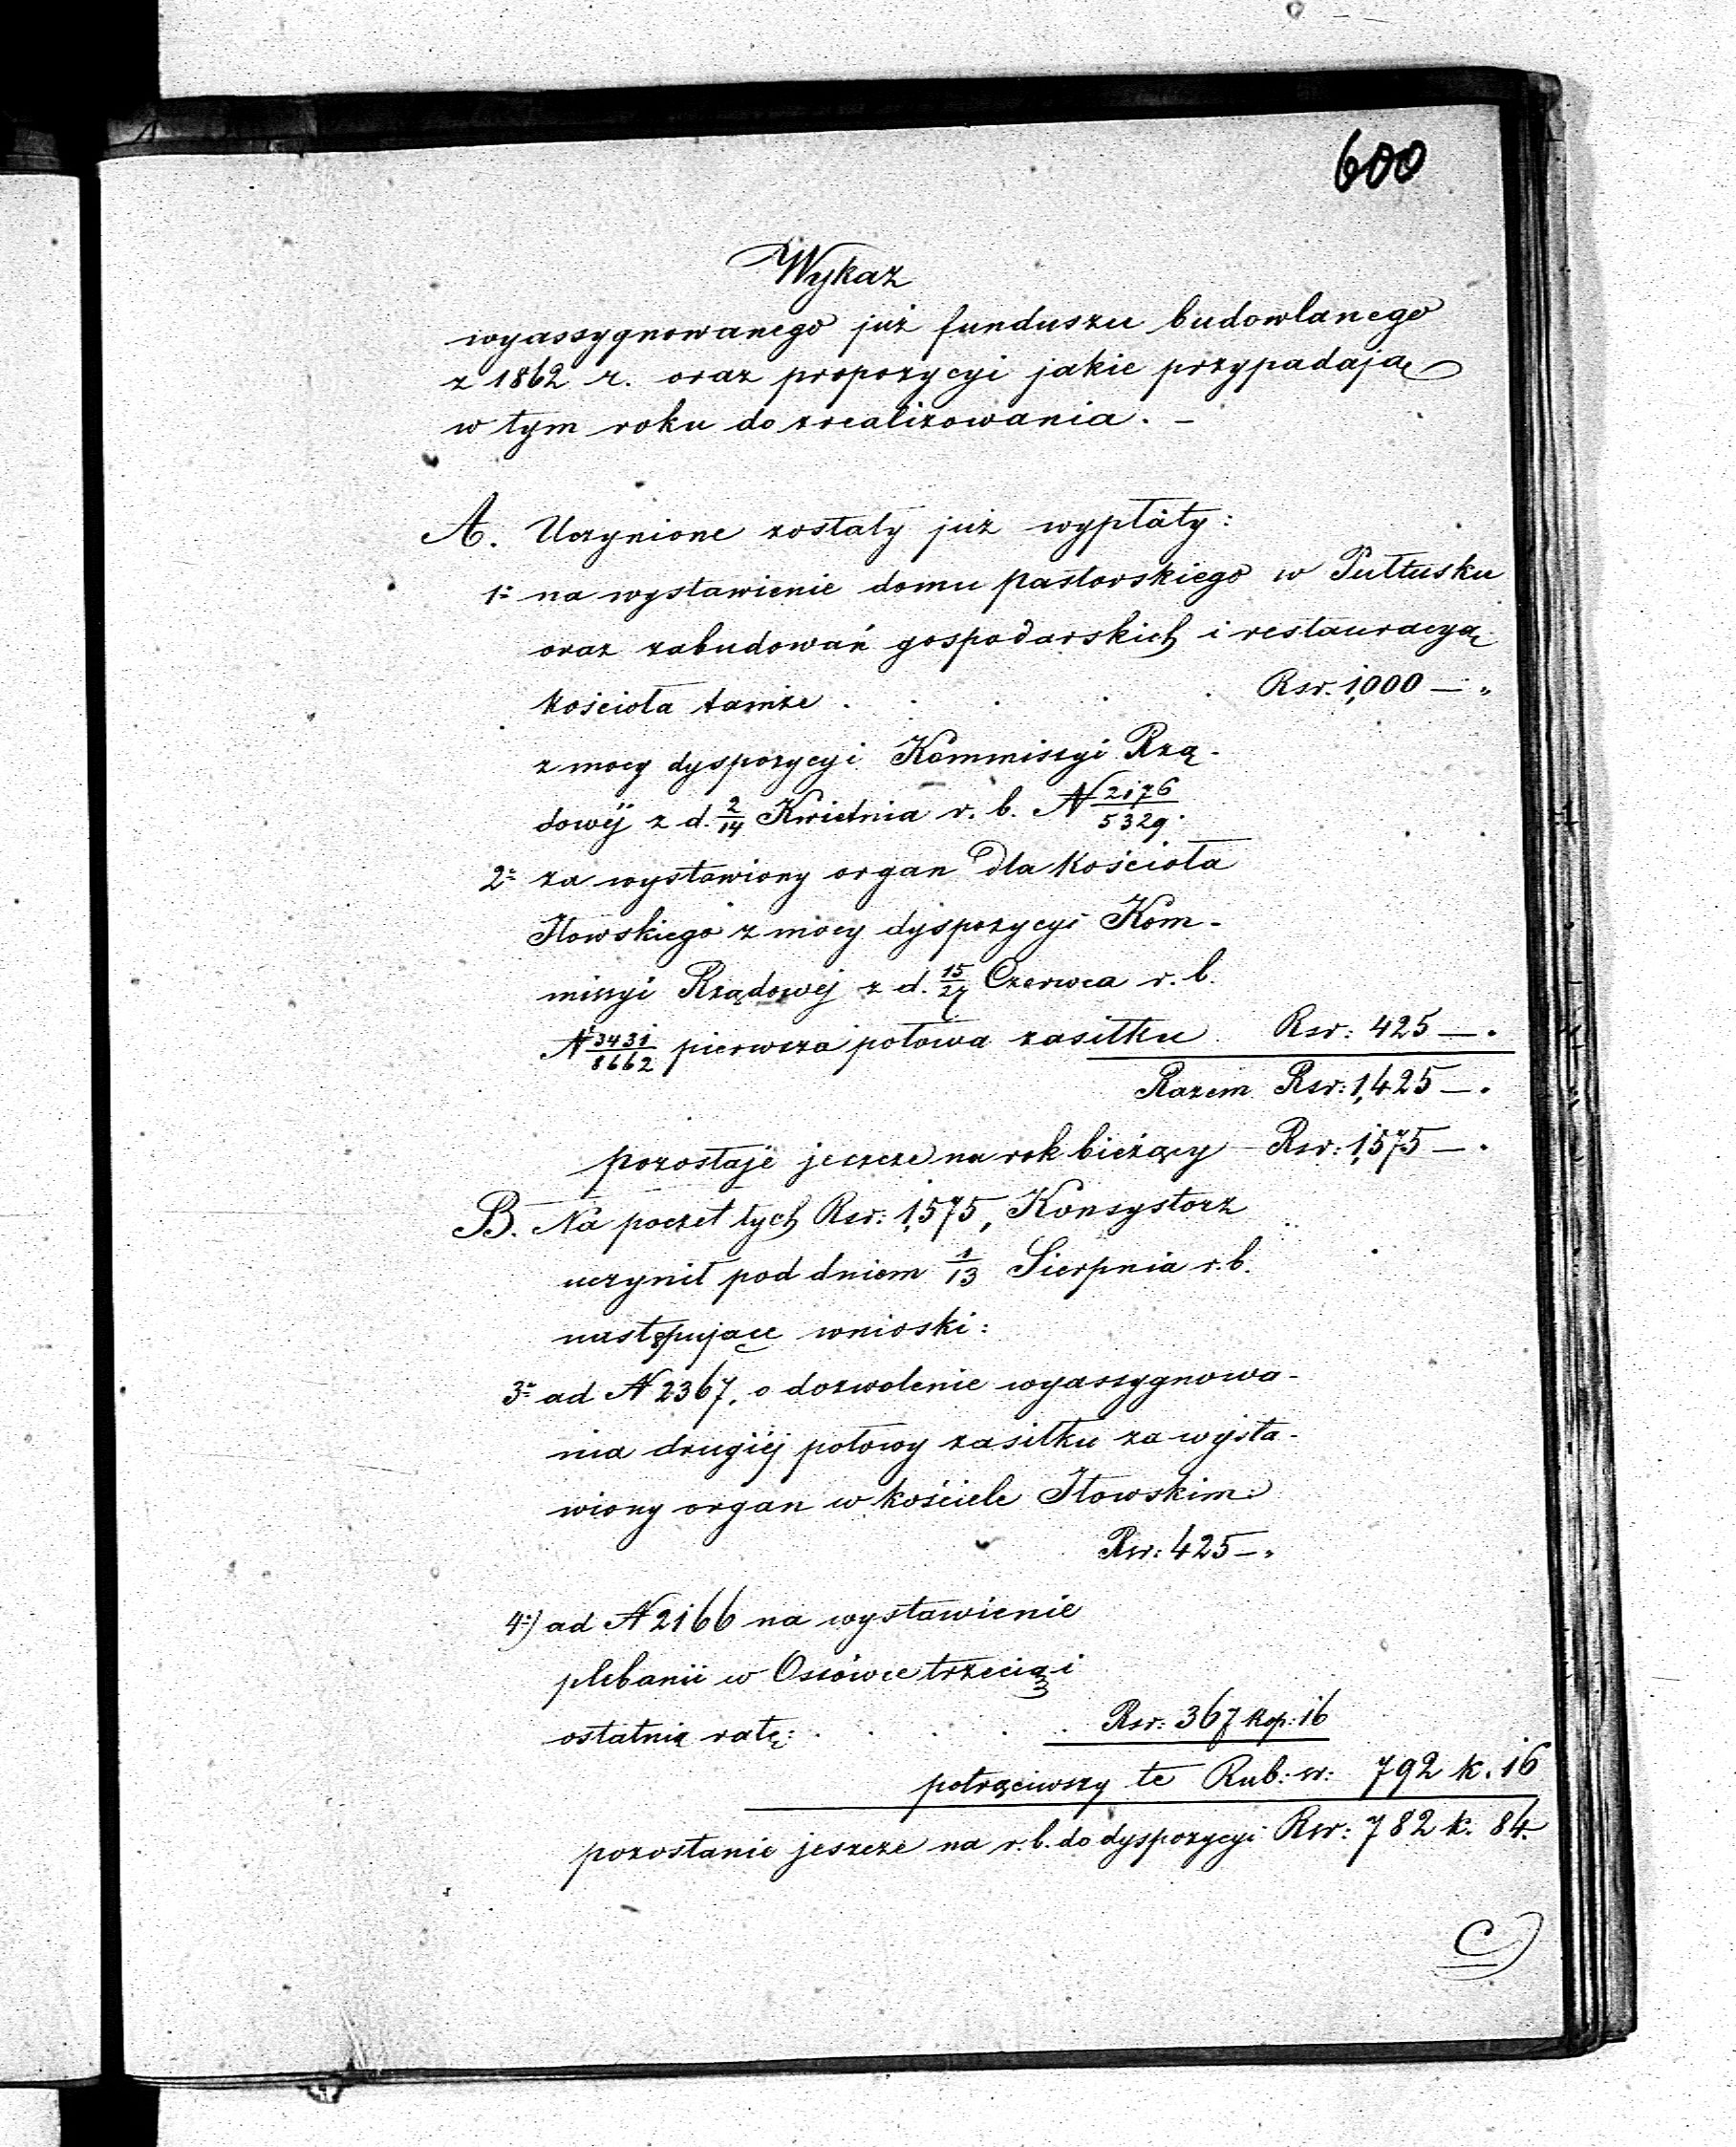 600
Wykaz
wyassygnowanego już funduszu budowlanego
z 1862 r. oraz propozycyi jakie przypadają
w tym roku do zrealizowania. –
A. Uczynione zostały już wypłaty:
1º na wystawienie domu pastorskiego w Pułtusku
oraz zabudowań gospodarskich i restauracyą
kościoła tamże . . . . . Rsr. 1,000 — „
z mocy dyspozycyi Kommissyi Rzą-
dowéj z d. 2/14 Kwietnia r. b. N 2176/5329.
2º za wystawiony organ dla Kościoła
Iłowskiego z mocy dyspozycyi Kom-
missyi Rządowéj z d. 15/27 Czerwca r. b.
N 3431/8662 pierwsza połowa zasiłku Rsr: 425 — „
Razem Rsr: 1,425 — „
pozostaje jeszcze na rok bieżący – Rsr: 1,575 — „
B. Na poczet tych Rsr: 1,575, Konsystorz
uczynił pod dniem 1/13 Sierpnia r. b.
następujące wnioski:
3º ad N 2367. o dozwolenie wyassygnowa-
nia drugiéj połowy zasiłku za wysta-
wiony organ w kościele Iłowskim:
Rsr: 425 — „
4º) ad N 2166 na wystawienie
plebanii w Ossówce trzecią i
ostatnią ratę: . . . . . Rsr: 367 kop: 16
potrąciwszy te Rub: sr: 792 k. 16
pozostanie jeszcze na r. b. do dyspozycyi Rsr: 782 k. 84.
C)